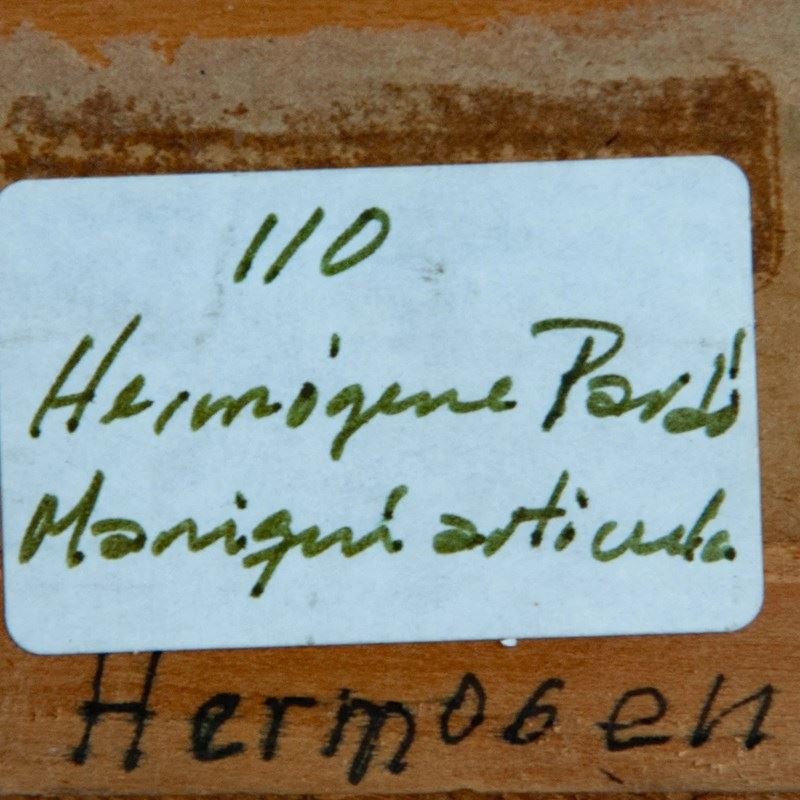 110
Hermógene Pardó
Maniquí articula
Hermogen